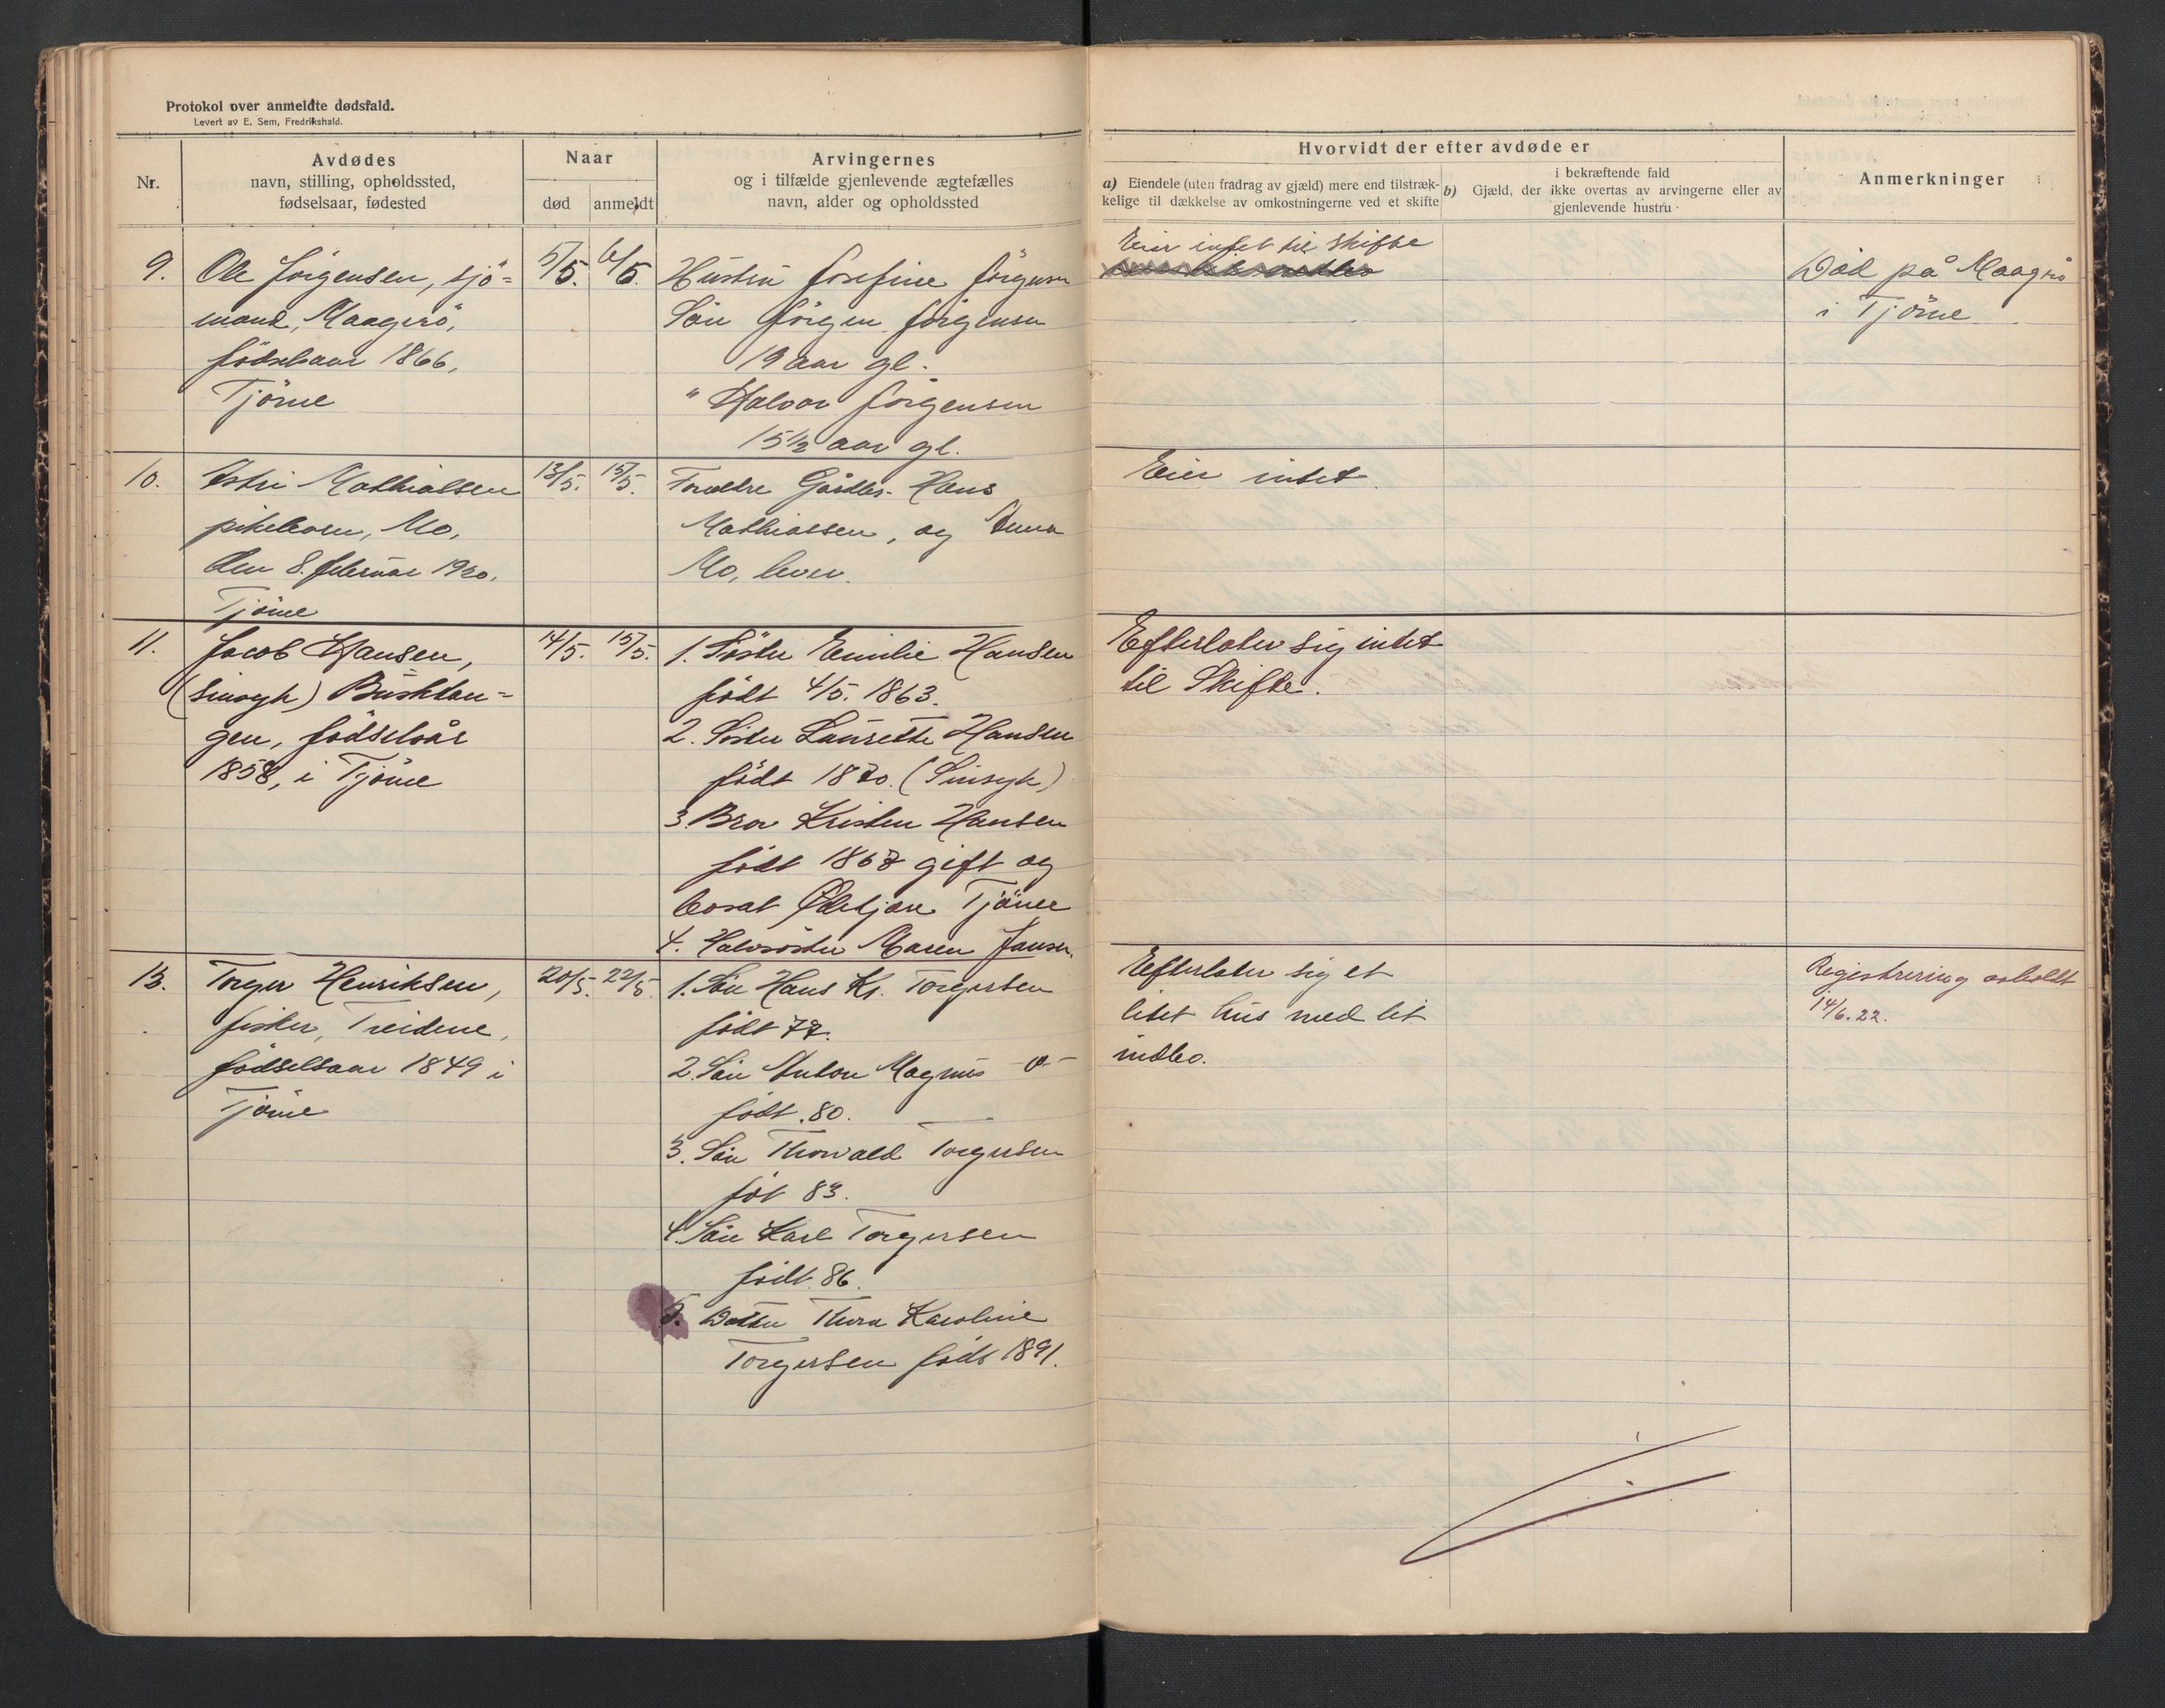 Protokol over anmeldte dødsfald.
Levert av E. Sem, Fredrikshald.
Nr.
Avdødes
navn, stilling, opholdssted,
fødselsaar, fødested
Naar
død
anmeldt
Arvingernes
og i tilfælde gjenlevende ægtefælles
navn, alder og opholdssted
Hvorvidt der efter avdøde er
a) Eiendele (uten fradrag av gjæld) mere end tilstræk-
kelige til dækkelse av omkostningerne ved et skifte
i bekræftende fald
b) Gjæld, der ikke overtas av arvingerne eller av
gjenlevende hustru
Anmerkninger
9.
Ole Jörgensen, sjö-
mand, Maagerö,
födselsaar 1866,
Tjöme
5/5. 6/5.
Hustru Josefine Jörgensen
Sön Jörgen Jörgensen
19 aar gl.
" Halvor Jörgensen
15 1/2 aar gl.
Eier intet til skifte
Död på Maagerö
i Tjöme
10.
Mathiassen
pikebarn, Mo,
den 8. februar 1920,
Tjöme
13/5. 15/5.
Forældre Gårdbr. Hans
Mathiassen, og Anna
Mo, lever.
Eier intet.
11.
Jacob Hansen,
(sinsyk) Busktan-
gen, födselsår
1858, i Tjöme
14/5. 15/5.
1. Söster Emilie Hansen
født 4/5. 1863.
2. Söster Laurette Hansen
født 1870. (Sinsyk)
3. Bror Kristen Hansen
født 1867 gift og
bosat Tjöme
4. Halvsöster Maren Jansen.
Efterlater sig intet
til Skifte.
13.
Torger Henriksen,
fisker, Treidene,
födselsaar 1849 i
Tjöme
20/5. 22/5.
1. Sön Hans Kr. Torgersen
født 77.
2. Sön Anton Magnus -o-
født 80.
3. Sön Thorvald Torgersen
föt 83.
4. Sön Karl Torgersen
født 86.
5. Datter Thora Karoline
Torgersen født 1891.
Efterlater sig et
litet hus med lit
indbo.
Registrering avholdt
14/6. 22.